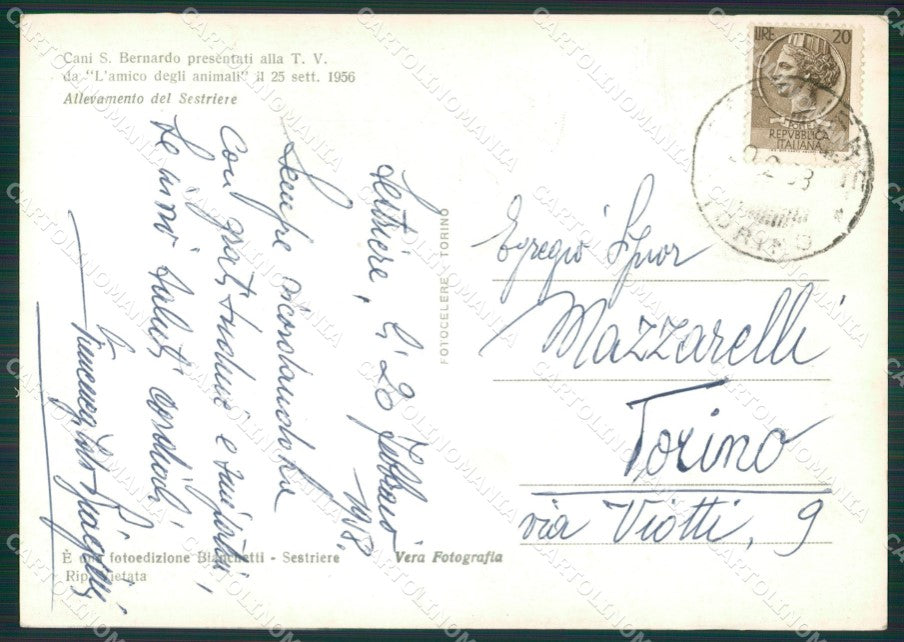 Cani S. Bernardo presentati alla T. V.
da "L'amico degli animali" il 25 sett. 1956
Allevamento del Sestriere
Sestriere, lì 20 febbraio
1958.
Sempre ricordandola
con gratitudine e
Le invio saluti cordiali
FOTOCELERE TORINO
LIRE 20
REPVBBLICA
ITALIANA
TORINO
Egregio Signor
Mazzarelli
Torino
via Viotti, 9
È una fotoedizione Bianchetti - Sestriere
Rip. Vietata
Vera Fotografia
CARTOLINOMANIA